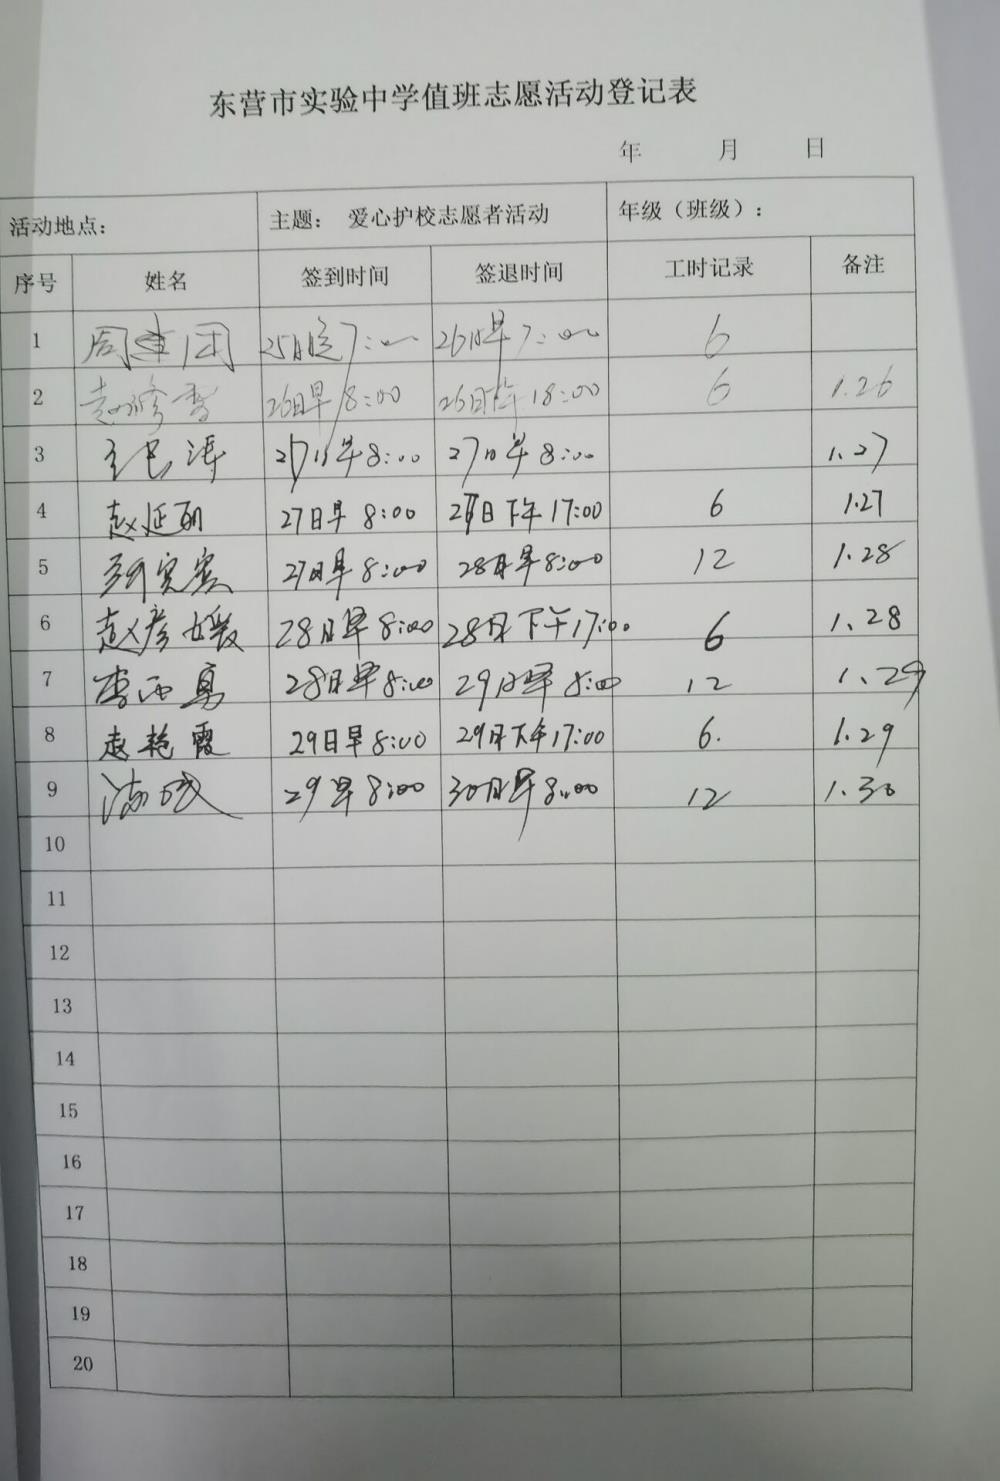 东营市实验中学值班志愿活动登记表
年 月 日
活动地点： 主题： 爱心护校志愿者活动 年级（班级）：
序号 姓名 签到时间 签退时间 工时记录 备注
1 25日晚7:00 26日早7:00 6
2 赵修雪 26日早8:00 26日下午18:00 6 1.26
3 27日早8:00 27日早8:00 1.27
4 赵延丽 27日早8:00 27日下午17:00 6 1.27
5 27日早8:00 28日早8:00 12 1.28
6 赵彦媛 28日早8:00 28日下午17:00 6 1.28
7 李西勇 28日早8:00 29日早8:00 12 1.29
8 赵艳霞 29日早8:00 29日下午17:00 6. 1.29
9 29早8:00 30日早8:00 12 1.30
10
11
12
13
14
15
16
17
18
19
20